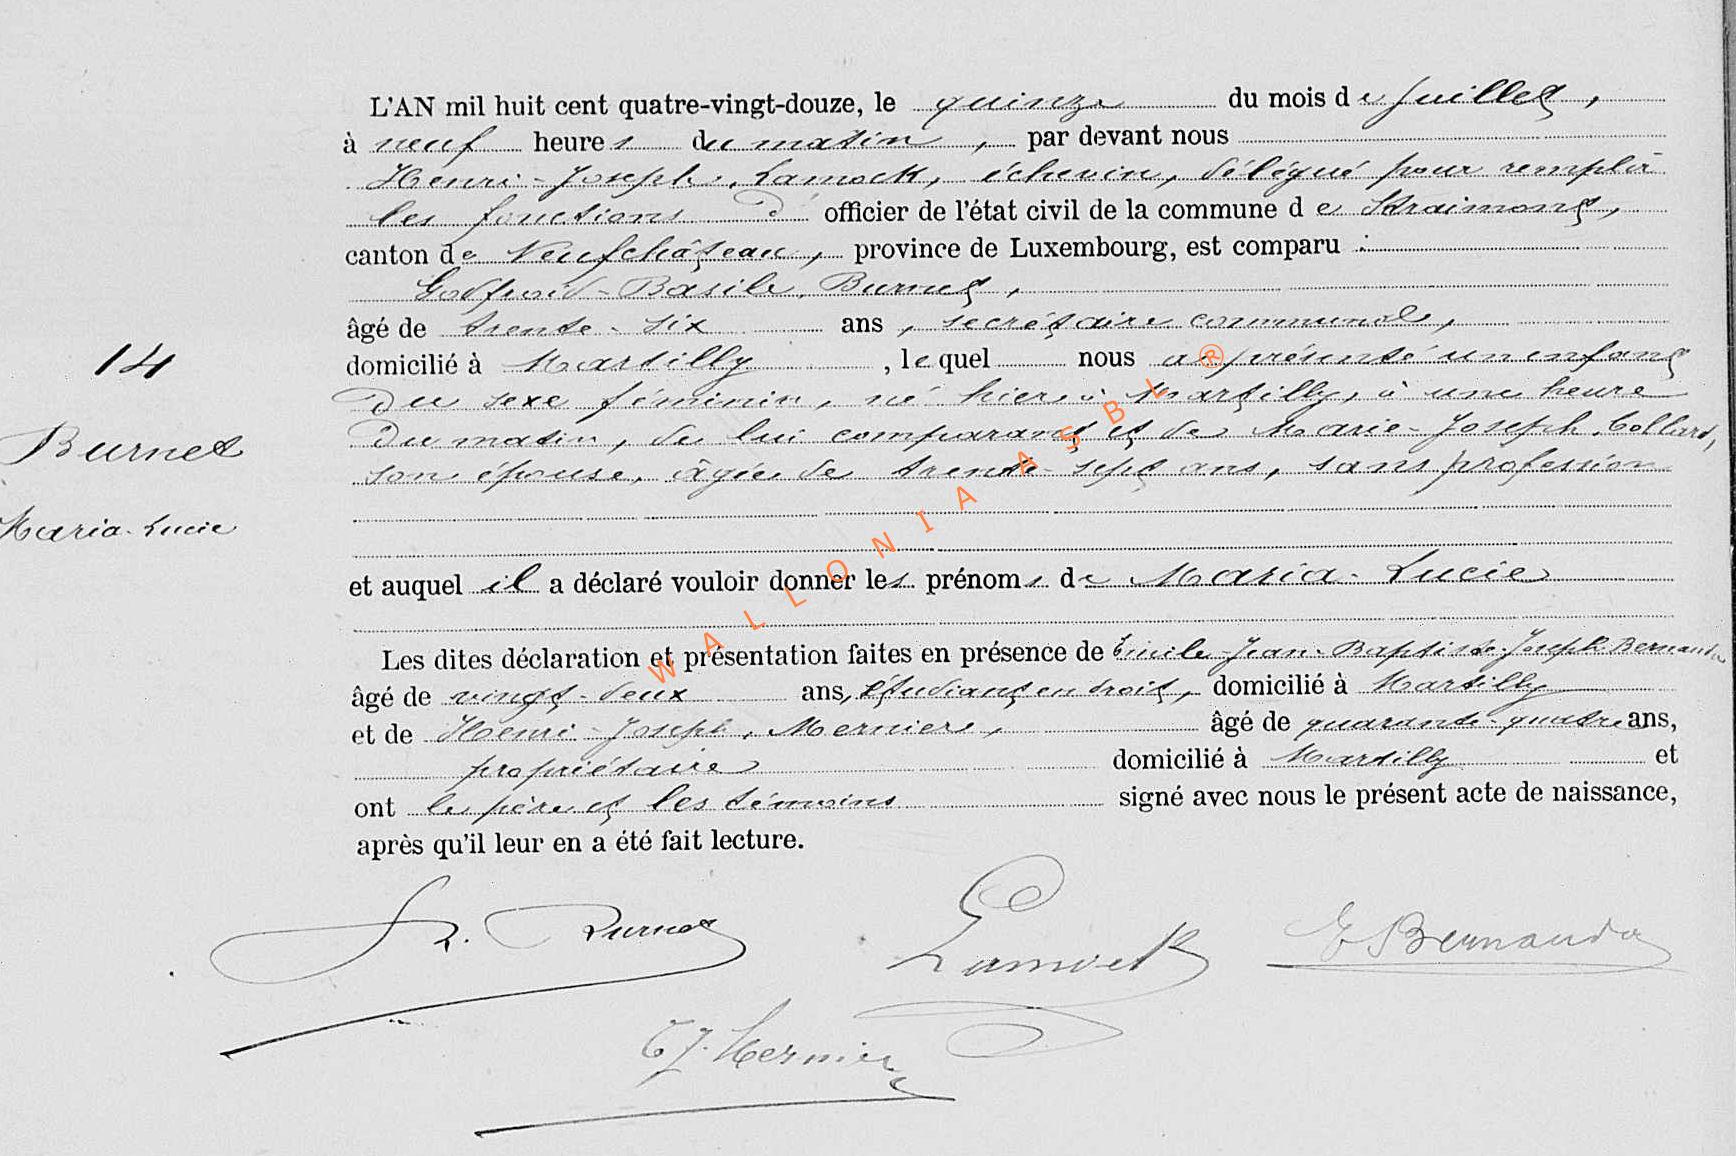 L'AN mil huit cent quatre-vingt-douze, le quinze du mois de Juillet,
à neuf heures du matin, par devant nous
Henri-Joseph Lamock, échevin, délégué pour remplir
les fonctions d' officier de l'état civil de la commune de Straimont,
canton de Neufchâteau, province de Luxembourg, est comparu :
Godfroid-Basile Burnet,
âgé de trente-six ans, secrétaire communal,
domicilié à Martilly, lequel nous a présenté un enfant
du sexe féminin, né hier à Martilly, à une heure
du matin, de lui comparant et de Marie-Joseph Collard,
son épouse, âgée de trente-sept ans, sans profession
et auquel il a déclaré vouloir donner les prénoms de Maria-Lucie
Les dites déclaration et présentation faites en présence de Emile-Jean-Baptiste-Joseph Bernanda
âgé de vingt-deux ans, étudiant en droit, domicilié à Martilly
et de Henri-Joseph Merniers, âgé de quarante-quatre ans,
propriétaire domicilié à Martilly et
ont le père et les témoins signé avec nous le présent acte de naissance,
après qu'il leur en a été fait lecture.
14
Burnet
Maria-Lucie
Burnet
Lamock
E Bernanda
Mernier
WALLONIA ASBL ®